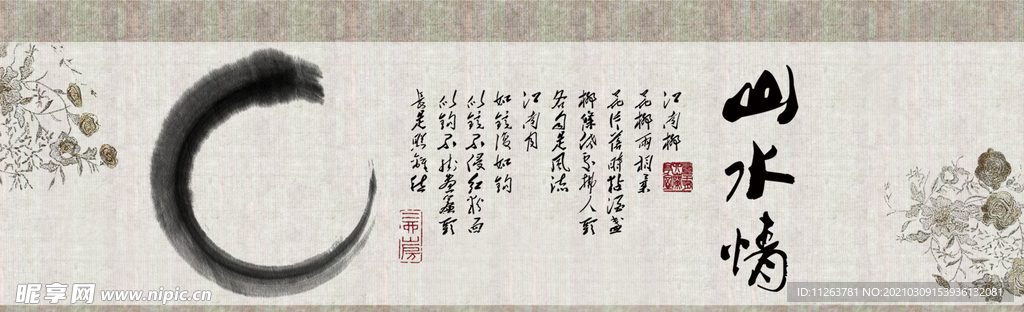 山水情
江南柳
花柳兩相柔
花片落時黏酒盞
柳條低處拂人頭
各自是風流
江南月
如鏡復如鈎
似鏡不侵紅粉面
似鈎不挂畫簾頭
長是照離愁
昵享网 www.nipic.cn
ID:11263781 NO:20210309153936132081